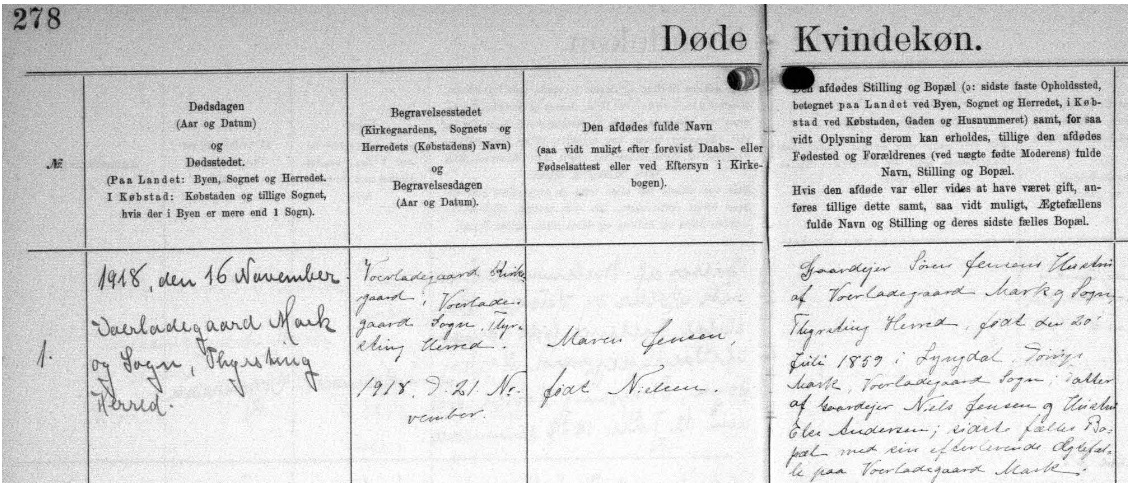 278
Døde Kvindekøn.
№
Dødsdagen
(Aar og Datum)
og
Dødsstedet.
(Paa Landet: Byen, Sognet og Herredet.
I Købstad: Købstaden og tillige Sognet,
hvis der i Byen er mere end 1 Sogn).
Begravelsesstedet
(Kirkegaardens, Sognets og
Herredets (Købstadens) Navn)
og
Begravelsesdagen
(Aar og Datum).
Den afdødes fulde Navn
(saa vidt muligt efter forevist Daabs- eller
Fødselsattest eller ved Eftersyn i Kirke-
bogen).
Den afdødes Stilling og Bopæl (ɔ: sidste faste Opholdssted,
betegnet paa Landet ved Byen, Sognet og Herredet, i Køb-
stad ved Købstaden, Gaden og Husnummeret) samt, for saa
vidt Oplysning derom kan erholdes, tillige den afdødes
Fødested og Forældrenes (ved uægte fødte Moderens) fulde
Navn, Stilling og Bopæl.
Hvis den afdøde var eller vides at have været gift, an-
føres tillige dette samt, saa vidt muligt, Ægtefællens
fulde Navn og Stilling og deres sidste fælles Bopæl.
1.
1918, den 16 November.
Voerladegaard Mark
og Sogn, Thyrsting
Herred.
Voerladegaard Kirke-
gaard, Voerlade-
gaard Sogn, Thyr-
sting Herred.
1918 d. 21 No-
vember.
Maren Jensen,
født Nielsen.
Gaardejer Søren Jensens Hustru
af Voerladegaard Mark og Sogn,
Thyrsting Herred, født den 20'
Juli 1859 i Lyngdal,
Mark, Voerladegaard Sogn; Datter
af Gaardejer Niels Jensen og Hustru
Else Andersen; sidste fælles Bo-
pæl med sin efterlevende Ægtefæl-
le paa Voerladegaard Mark.